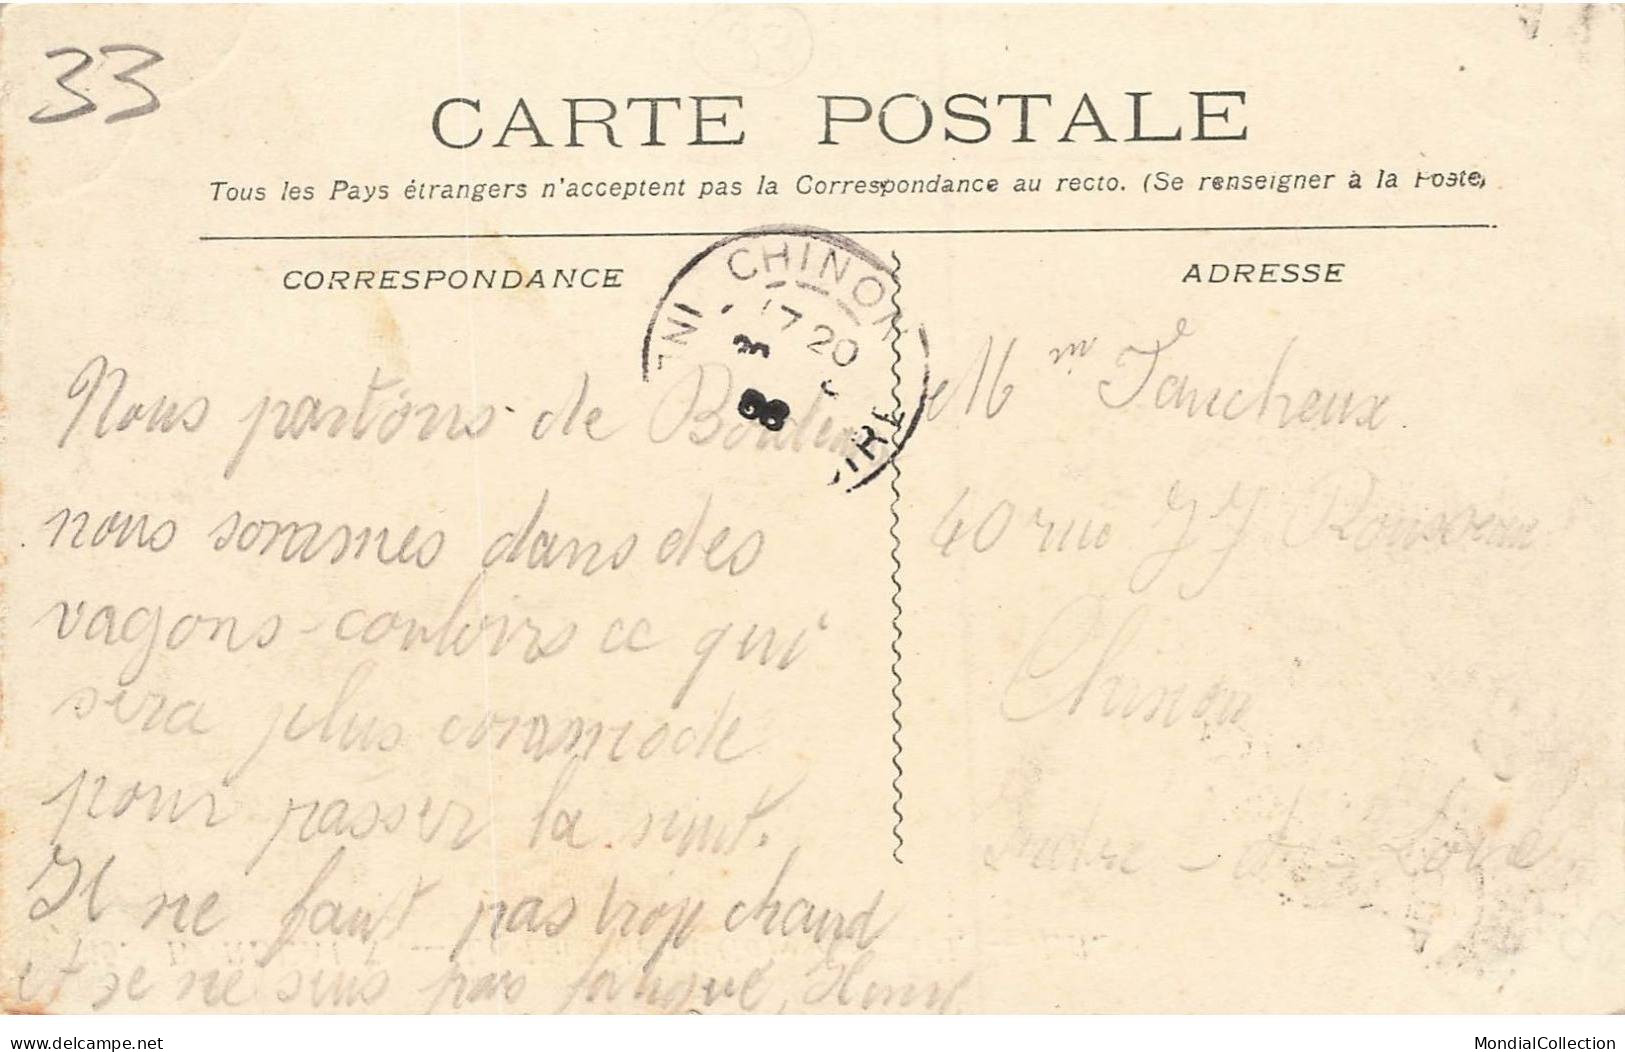 33
CARTE POSTALE
Tous les Pays étrangers n'acceptent pas la Correspondance au recto. (Se renseigner à la Poste)
CORRESPONDANCE
Nous partons de Bordeaux
nous sommes dans des
vagons-couloirs ce qui
sera plus commode
pour passer la nuit.
Il ne faut pas trop chaud
et je ne suis pas fatigué,
CHINON
17 20
3
08
IRE
ADRESSE
Mme Faucheux
40 rue JJ Rousseau
Chinon
Indre-et-Loire
www.delcampe.net
MondialCollection